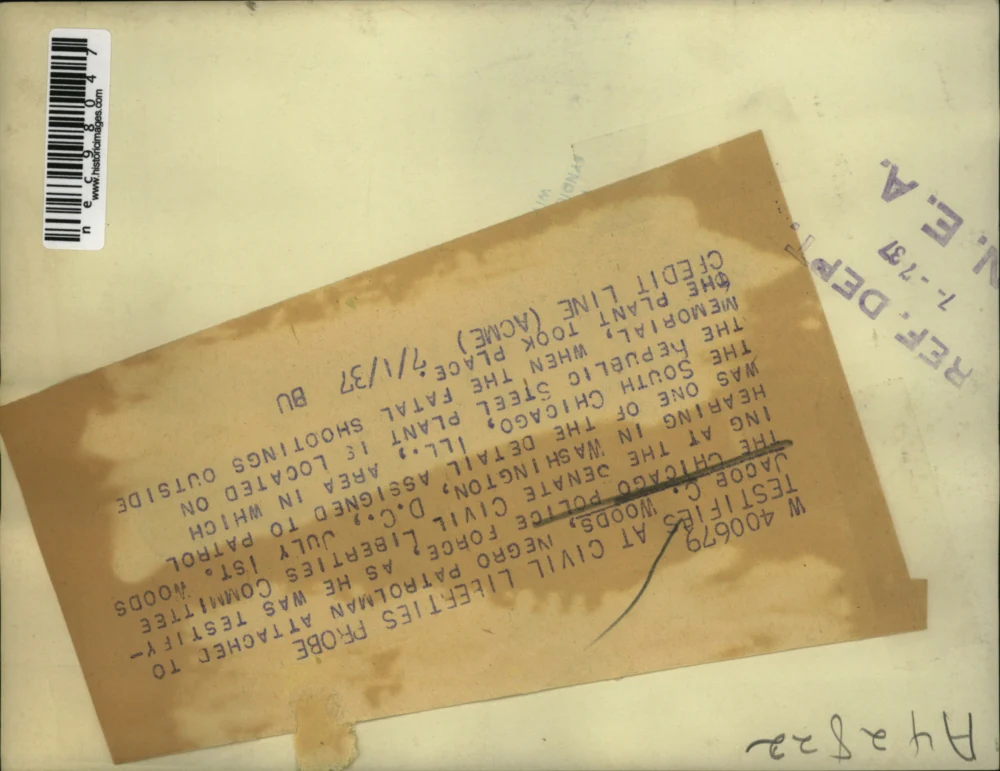 W 400679
TESTIFIES AT CIVIL LIBERTIES PROBE
JACOB C. WOODS, NEGRO PATROLMAN ATTACHED TO
THE CHICAGO POLICE FORCE, AS HE WAS TESTIFY-
ING AT THE SENATE CIVIL LIBERTIES COMMITTEE
HEARING IN WASHINGTON, D.C., JULY 1ST. WOODS
WAS ONE OF THE DETAIL ASSIGNED TO PATROL
THE SOUTH CHICAGO, ILL., AREA IN WHICH
THE REPUBLIC STEEL PLANT IS LOCATED ON
MEMORIAL, WHEN THE FATAL SHOOTINGS OUTSIDE
THE PLANT TOOK PLACE.
CREDIT LINE (ACME) 7/1/37 BU
REF. DEPT.
7--737
N. E. A.
A42822
nec98047
www.historicimages.com